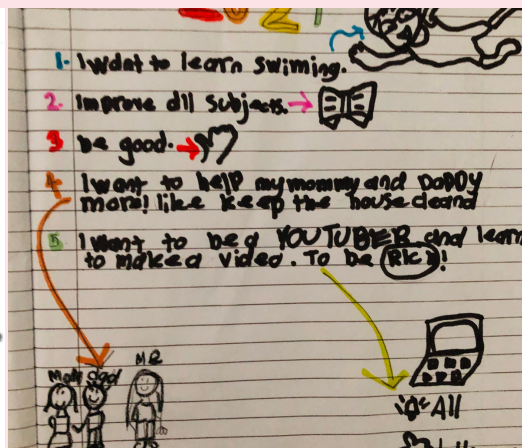 2021
1. I want to learn swiming.
2. Improve all subjects.
3 be good.
4 I want to help my mommy and DaDDY
more! like keep the house cleand
5 I want to be a YOUTUBER and learn
to make a video. To be RICH!
Mom dad ME
All